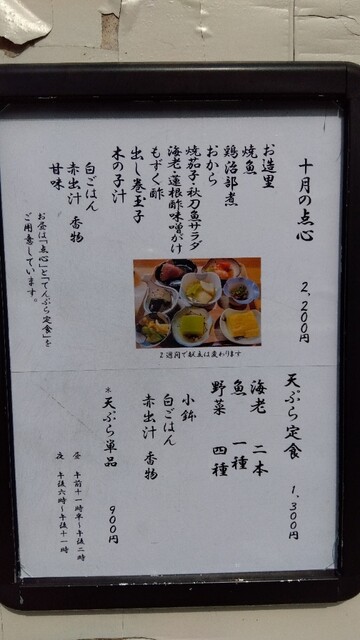 十月の点心
2,200円
お造里
焼魚
鶏治部煮
おから
焼茄子・秋刀魚サラダ
海老・蓮根酢味噌がけ
もずく酢
出し巻玉子
木の子汁
白ごはん
赤出汁 香物
甘味
お昼は「点心」と「てんぷら定食」を
ご用意しています。
2週間で献立は変わります
天ぷら定食
1,300円
海老 二本
魚 一種
野菜 四種
小鉢
白ごはん
赤出汁 香物
天ぷら単品
900円
昼 午前十一時半～午後二時
夜 午後六時～午後十一時